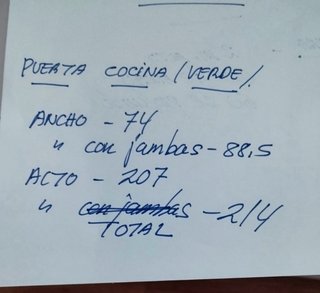 PUERTA COCINA/VERDE/.
ANCHO - 74
" con jambas - 88,5
ALTO - 207
" con jambas - 214
TOTAL